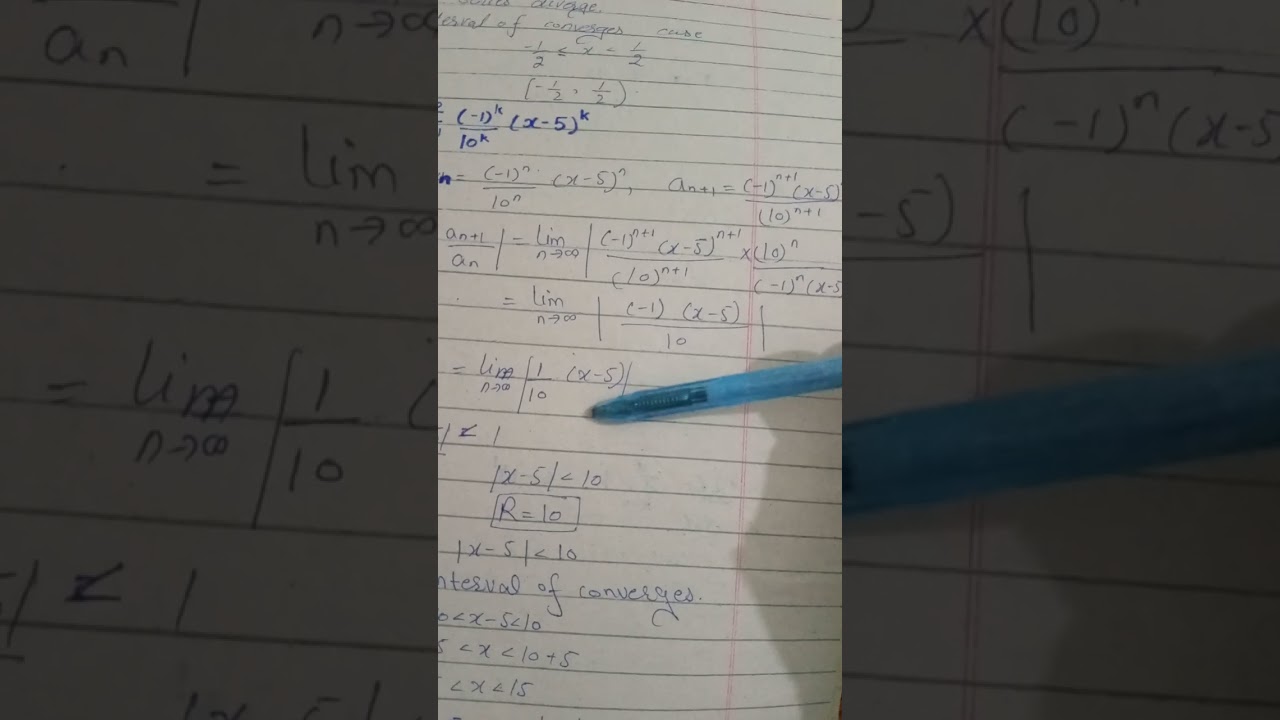 diverge
of converges case
-1/2 ≤ x < 1/2
[-1/2, 1/2)
(-1)^k/10^k (x-5)^k
= (-1)^n/10^n · (x-5)^n, a_{n+1} = (-1)^{n+1} (x-5)/(10)^{n+1}
a_{n+1}/a_n | = lim_{n→∞} | (-1)^{n+1} (x-5)^{n+1}/(10)^{n+1} × (10)^n/(-1)^n (x-5
= lim_{n→∞} | (-1) (x-5)/10 |
= lim_{n→∞} | 1/10 (x-5) |
| < 1
|x-5| < 10
R = 10
|x-5| < 10
nterval of converges.
0 < x-5 < 10
5 < x < 10+5
< x < 15